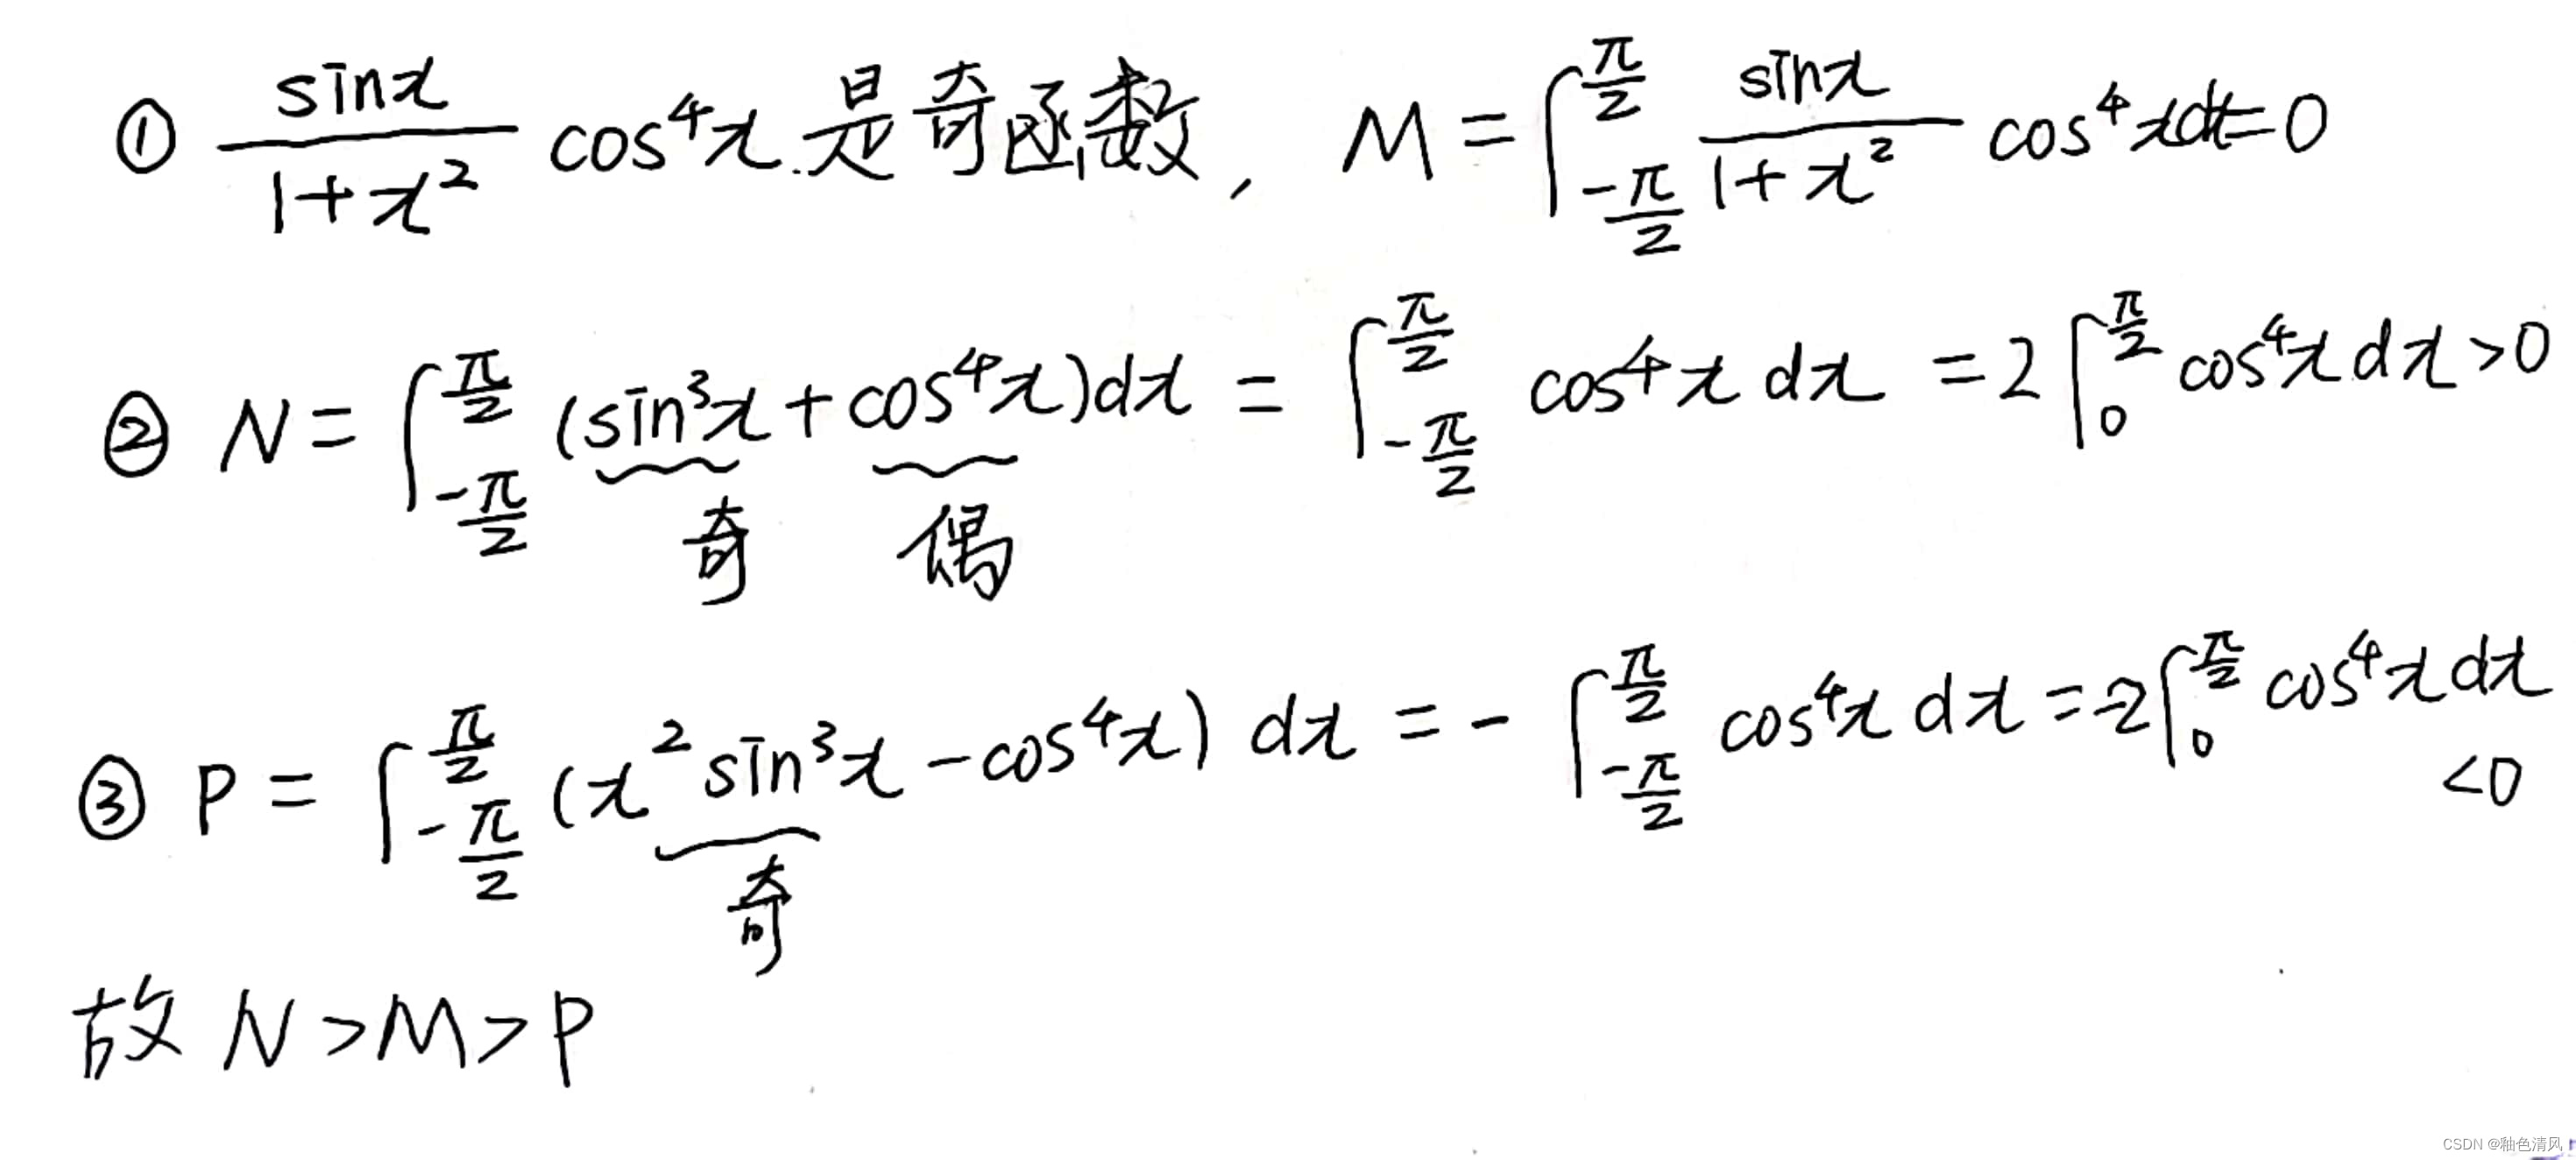 ① \frac{sinx}{1+x^2} cos^4x 是奇函数, M = \int_{-\frac{π}{2}}^{\frac{π}{2}} \frac{sinx}{1+x^2} cos^4xdx=0
② N = \int_{-\frac{π}{2}}^{\frac{π}{2}} (sin^3x + cos^4x)dx = \int_{-\frac{π}{2}}^{\frac{π}{2}} cos^4x dx = 2\int_{0}^{\frac{π}{2}} cos^4x dx > 0
奇 偶
③ P = \int_{-\frac{π}{2}}^{\frac{π}{2}} (x^2 sin^3x - cos^4x) dx = - \int_{-\frac{π}{2}}^{\frac{π}{2}} cos^4x dx = -2\int_{0}^{\frac{π}{2}} cos^4x dx
<0
奇
故 N > M > P
CSDN @釉色清风